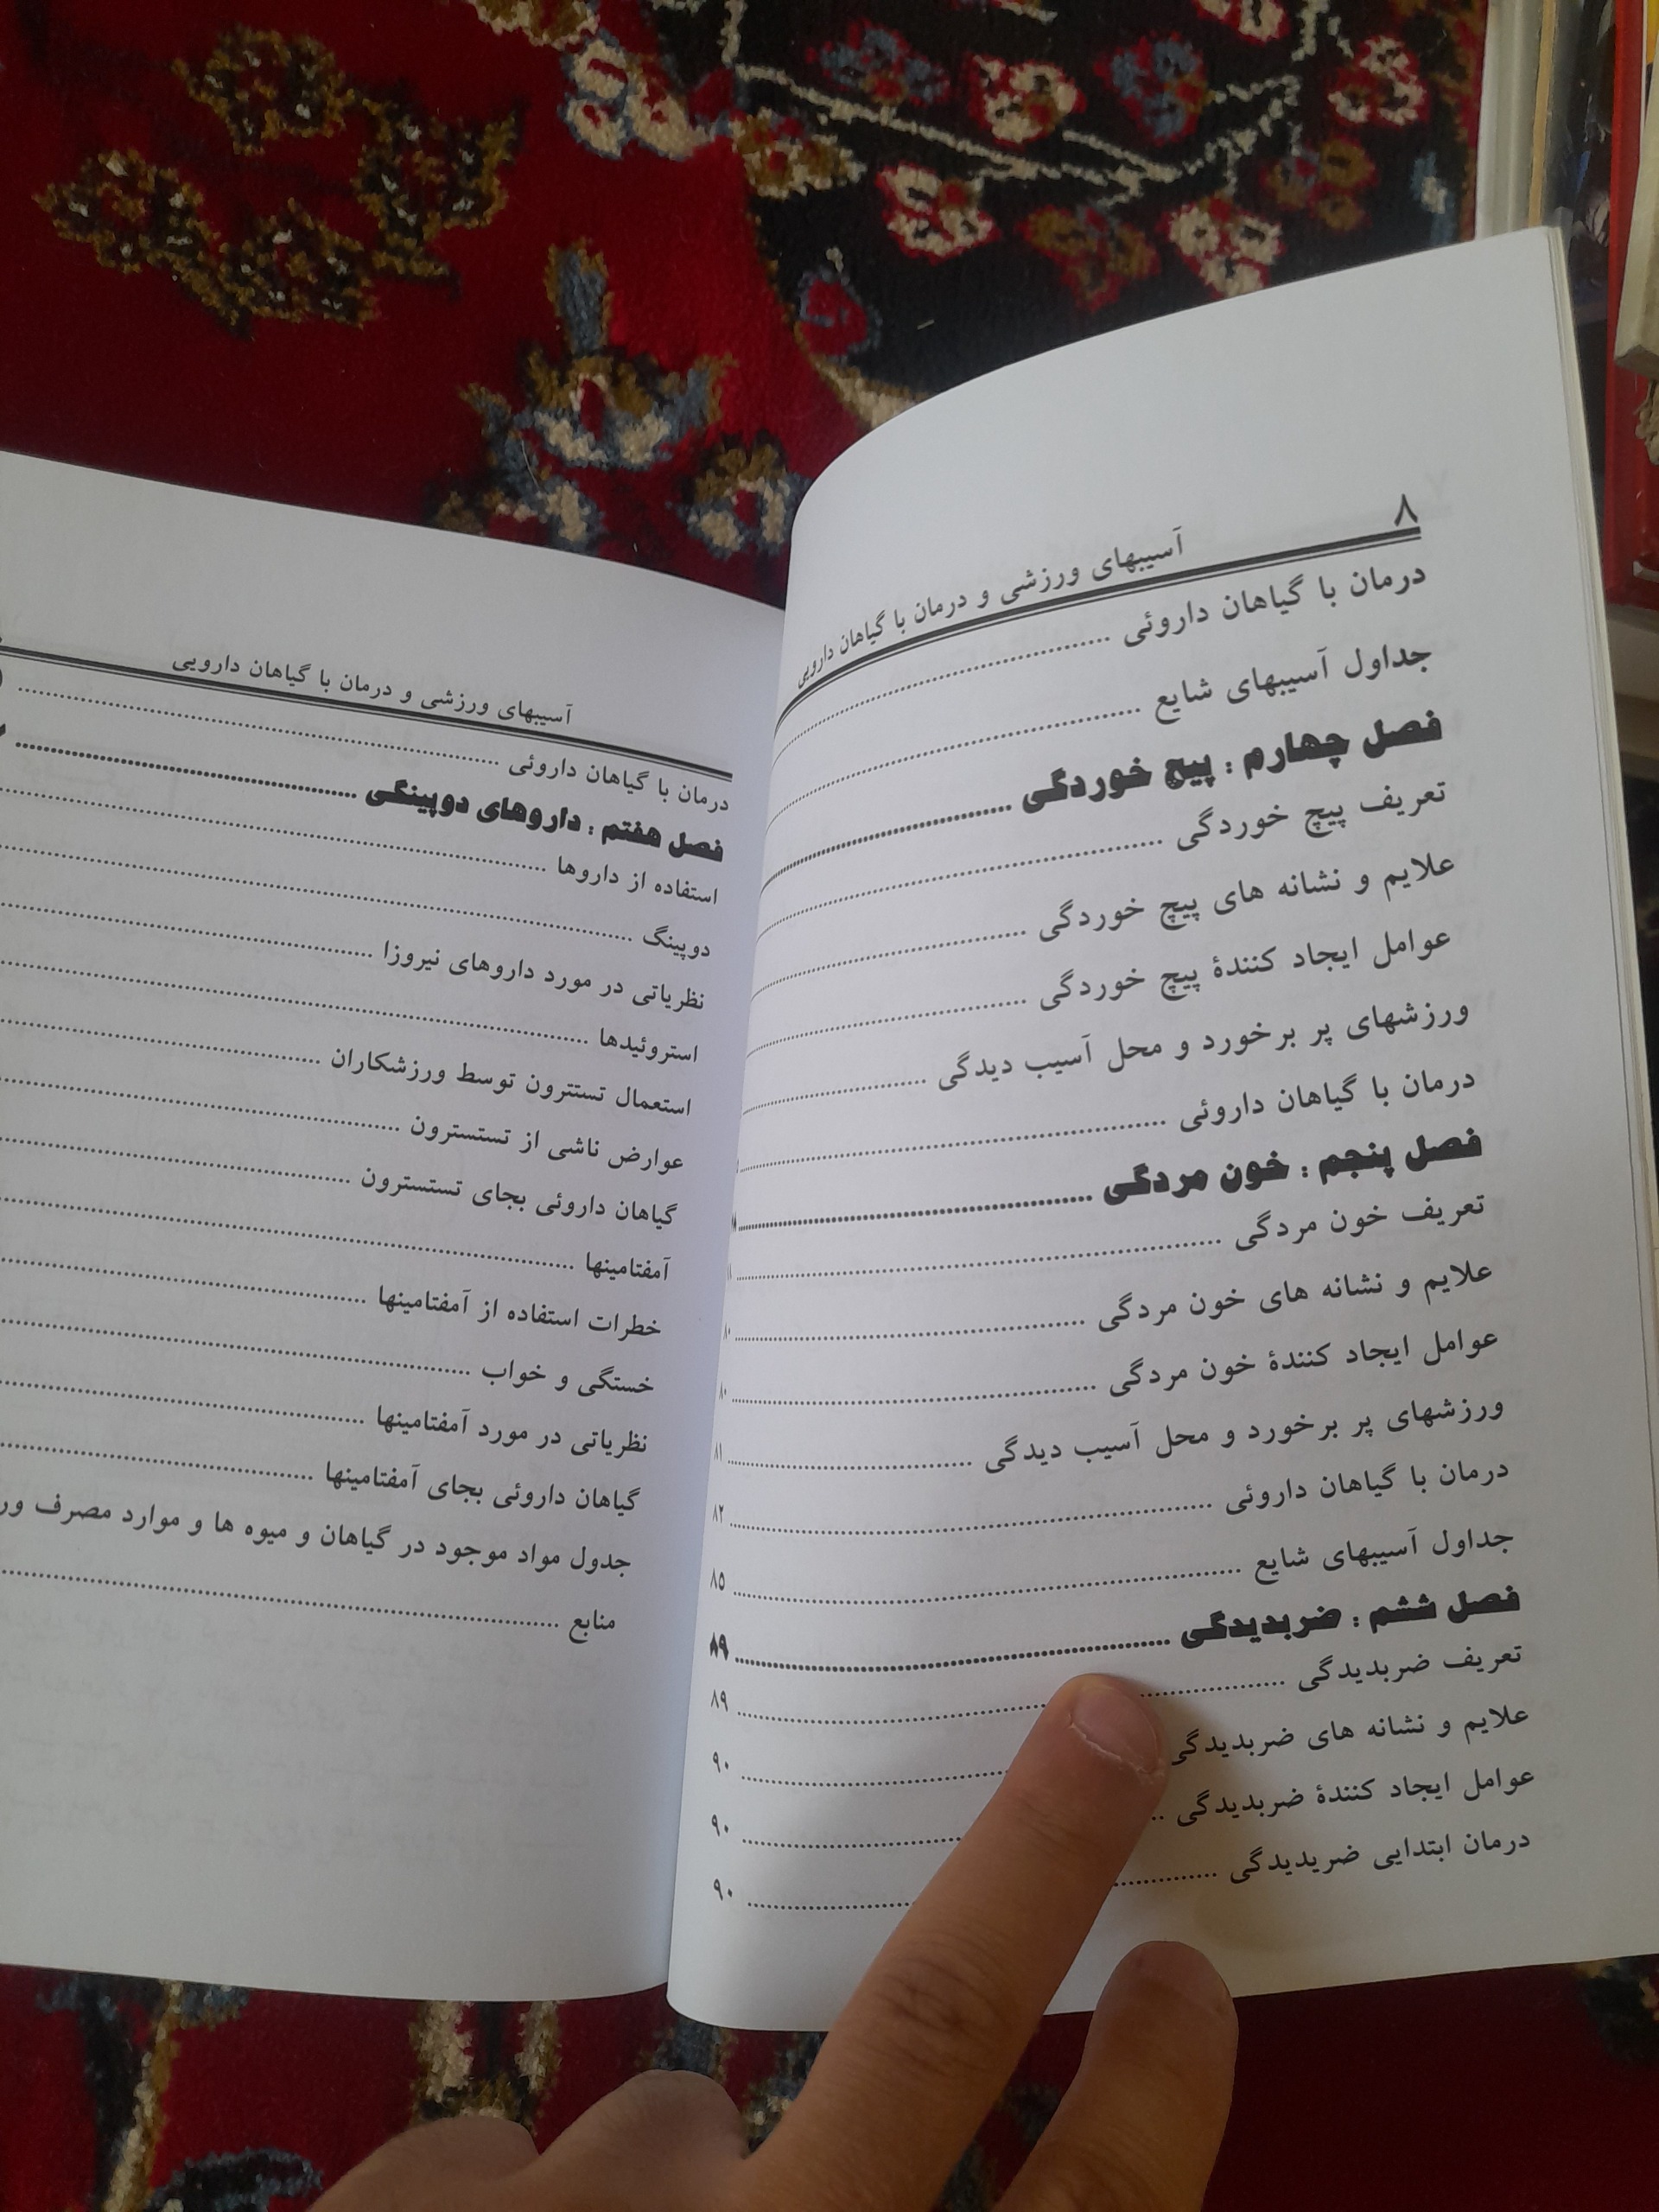 ۸
آسیبهای ورزشی و درمان با گیاهان دارویی
درمان با گیاهان داروئی ........................................
جداول آسیبهای شایع ........................................
فصل چهارم : پیچ خوردگی ........................................
تعریف پیچ خوردگی ........................................
علایم و نشانه های پیچ خوردگی ........................................
عوامل ایجاد کنندهٔ پیچ خوردگی ........................................
ورزشهای پر برخورد و محل آسیب دیدگی ........................................
درمان با گیاهان داروئی ........................................
فصل پنجم : خون مردگی ........................................
تعریف خون مردگی ........................................
علایم و نشانه های خون مردگی ........................................ ۸۰
عوامل ایجاد کنندهٔ خون مردگی ........................................ ۸۰
ورزشهای پر برخورد و محل آسیب دیدگی ........................................ ۸۱
درمان با گیاهان داروئی ........................................ ۸۲
جداول آسیبهای شایع ........................................ ۸۵
فصل ششم : ضربدیدگی ........................................ ۸۹
تعریف ضربدیدگی ........................................ ۸۹
علایم و نشانه های ضربدیدگی ........................................ ۹۰
عوامل ایجاد کنندهٔ ضربدیدگی ........................................ ۹۰
درمان ابتدایی ضریدیدگی ........................................ ۹۰
آسیبهای ورزشی و درمان با گیاهان دارویی
درمان با گیاهان داروئی ........................................
فصل هفتم : داروهای دوپینگی ........................................
استفاده از داروها ........................................
دوپینگ ........................................
نظریاتی در مورد داروهای نیروزا ........................................
استروئیدها ........................................
استعمال تستترون توسط ورزشکاران ........................................
عوارض ناشی از تستسترون ........................................
گیاهان داروئی بجای تستسترون ........................................
آمفتامینها ........................................
خطرات استفاده از آمفتامینها ........................................
خستگی و خواب ........................................
نظریاتی در مورد آمفتامینها ........................................
گیاهان داروئی بجای آمفتامینها ........................................
جدول مواد موجود در گیاهان و میوه ها و موارد مصرف
منابع ........................................